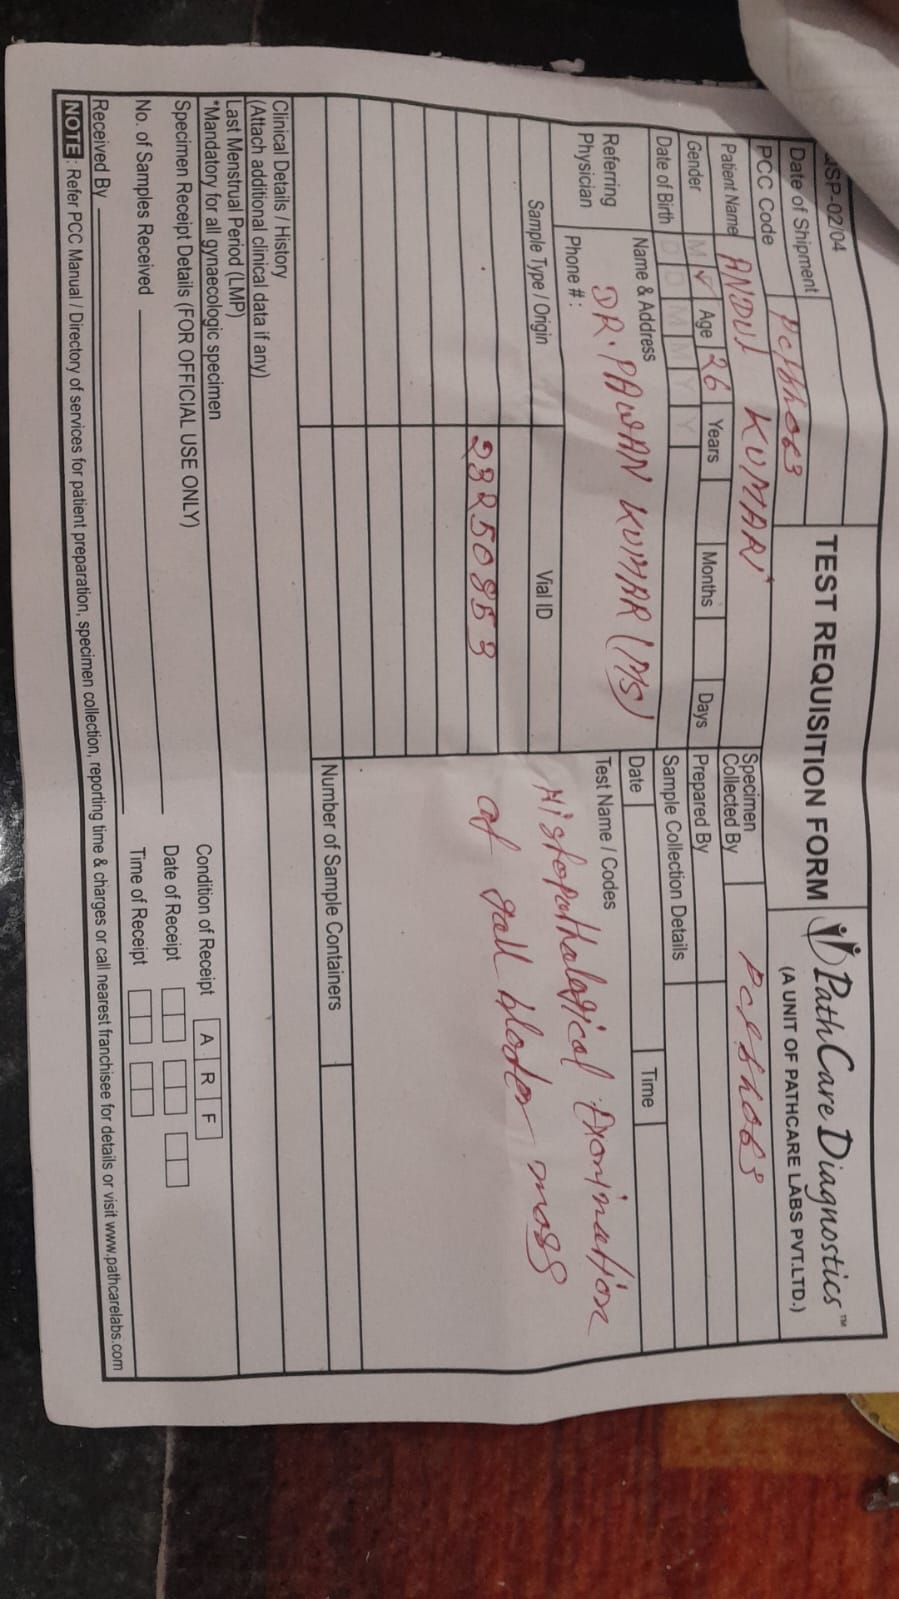 JSP-02/04
TEST REQUISITION FORM
PathCare Diagnostics™
(A UNIT OF PATHCARE LABS PVT.LTD.)
Date of Shipment
PCC Code
Patient Name ANDUJ KUMARI
Gender M Age 26 Years Months Days
Date of Birth D D M M Y Y
Referring Physician
Name & Address DR. PAWAN KUMAR (MS)
Phone # :
Specimen Collected By
Prepared By
Sample Collection Details
Date Time
Test Name / Codes
Histopathological Examination
of gall blader mass
Sample Type / Origin Vial ID
23250953
Number of Sample Containers
Clinical Details / History
(Attach additional clinical data if any)
Last Menstrual Period (LMP)
*Mandatory for all gynaecologic specimen
Specimen Receipt Details (FOR OFFICIAL USE ONLY)
Condition of Receipt A R F
No. of Samples Received Date of Receipt
Received By Time of Receipt
NOTE : Refer PCC Manual / Directory of services for patient preparation, specimen collection, reporting time & charges or call nearest franchisee for details or visit www.pathcarelabs.com